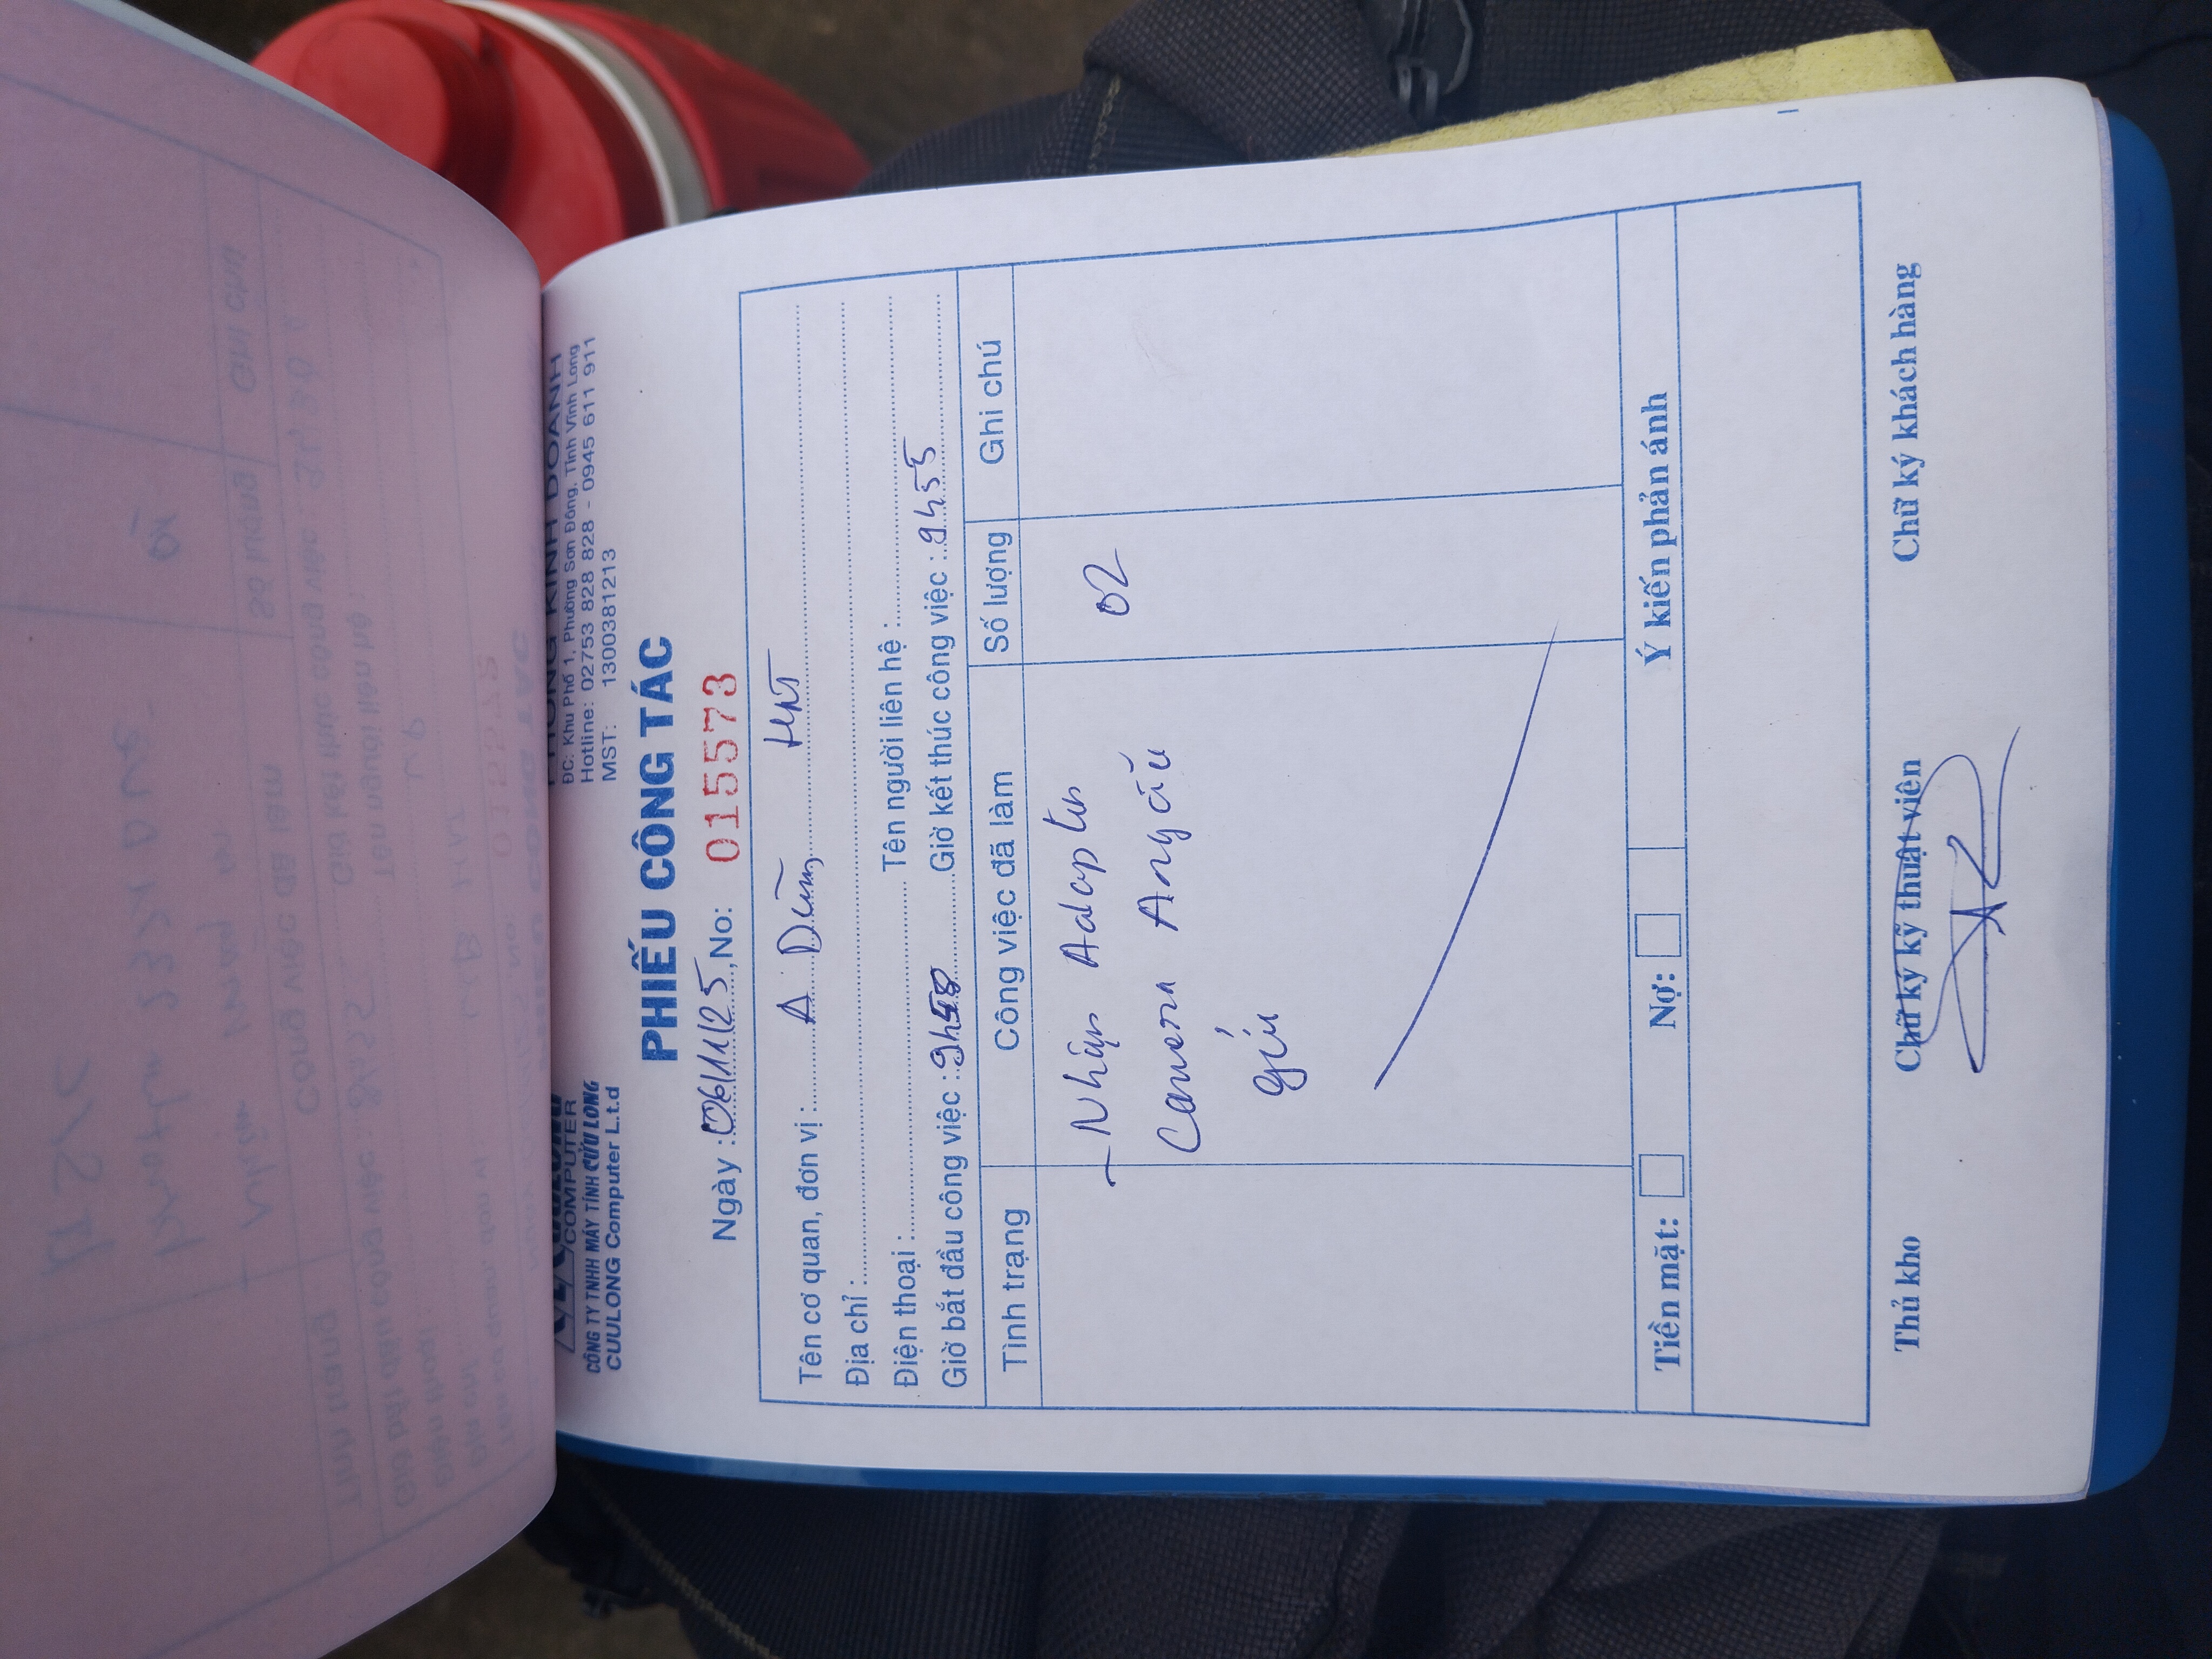 COMPUTER
CÔNG TY TNHH MÁY TÍNH CỬU LONG
CUULONG Computer L.t.d
PHÒNG KINH DOANH
ĐC: Khu Phố 1, Phường Sơn Đông, Tỉnh Vĩnh Long
Hotline: 02753 828 828 - 0945 611 911
MST: 1300381213
PHIẾU CÔNG TÁC
Ngày : 06/11/25, No: 015573
Tên cơ quan, đơn vị : A Dũng
Địa chỉ :
Điện thoại : Tên người liên hệ :
Giờ bắt đầu công việc : Giờ kết thúc công việc : 9h55
Tình trạng Công việc đã làm Số lượng Ghi chú
- Nhập Adapter 02
Camera A
gửi
Tiền mặt: Nợ: Ý kiến phản ánh
Thủ kho Chữ ký kỹ thuật viên Chữ ký khách hàng